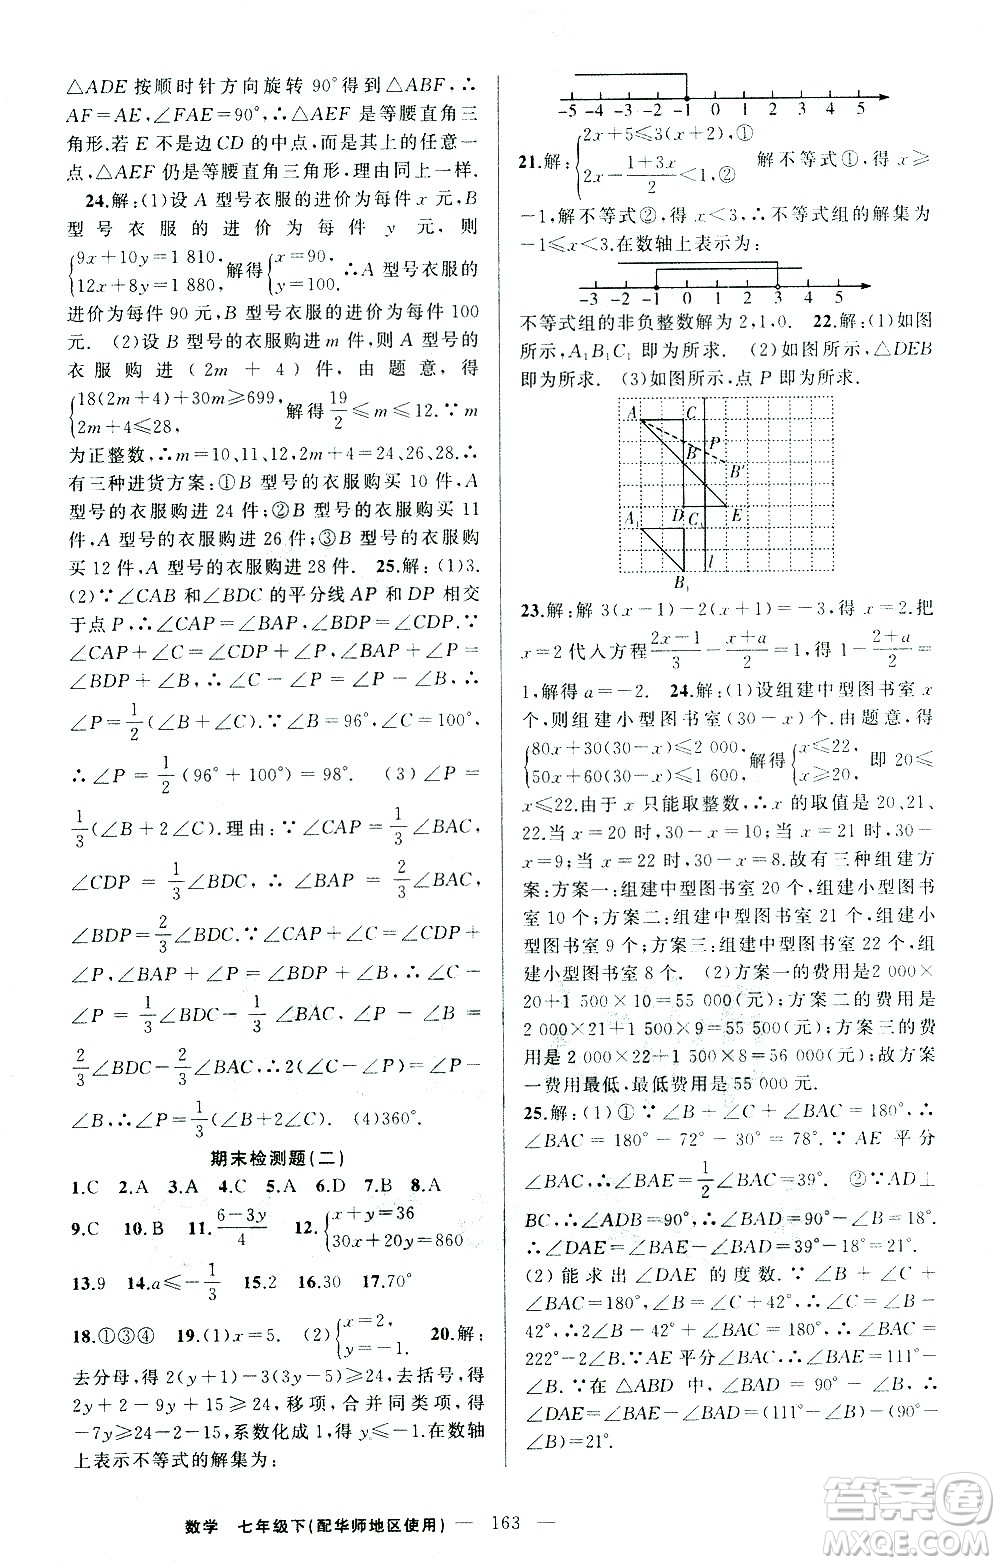 △ADE 按顺时针方向旋转 90°得到△ABF,∴
AF=AE,∠FAE=90°,∴△AEF 是等腰直角三
角形.若 E 不是边 CD 的中点,是其上的任意一
点,△AEF 仍是等腰直角三角形,理由同上一样.
24.解:(1)设 A 型号衣服的进价为每件 x 元,B
型号衣服的进价为每件 y 元,则
{9x+10y=1 810, 12x+8y=1 880, 解得{x=90, y=100. ∴A 型号衣服的
进价为每件 90 元,B 型号衣服的进价为每件 100
元. (2)设 B 型号衣服购进 m 件,则 A 型号的
衣服购进(2m+4)件,由题意,得
{18(2m+4)+30m≥699, 2m+4≤28, 解得 19/2 ≤m≤12.∵m
为正整数,∴m=10,11,12,2m+4=24,26,28.∴
有三种进货方案:①B 型号的衣服购买 10 件,A
型号的衣服购进 24 件;②B 型号的衣服购买 11
件,A 型号的衣服购进 26 件;③B 型号的衣服购
买 12 件,A 型号的衣服购进 28 件. 25.解:(1)3.
(2)∵∠CAB 和∠BDC 的平分线 AP 和 DP 相交
于点 P,∴∠CAP=∠BAP,∠CDP=∠BDP.∵
∠CAP+∠C=∠CDP+∠P,∠BAP+∠P=
∠BDP+∠B,∴∠C-∠P=∠P-∠B,∴
∠P=1/2(∠B+∠C).∵∠B=96°,∠C=100°,
∴∠P=1/2(96°+100°)=98°. (3)∠P=
1/3(∠B+2∠C).理由:∵∠CAP=1/3∠BAC,
∠CDP=1/3∠BDC,∴∠BAP=2/3∠BAC,
∠BDP=2/3∠BDC.∵∠CAP+∠C=∠CDP+
∠P,∠BAP+∠P=∠BDP+∠B,∴∠C-
∠P=1/3∠BDC-1/3∠BAC,∠P-∠B=
2/3∠BDC-2/3∠BAC,∴2(∠C-∠P)=∠P-
∠B,∴∠P=1/3(∠B+2∠C). (4)360°.
期末检测题(二)
1.C 2.A 3.A 4.C 5.A 6.D 7.B 8.A
9.C 10.B 11.(6-3y)/4 12.{x+y=36 30x+20y=860
13.9 14.a≤-1/3 15.2 16.30 17.70°
18.①③④ 19.(1)x=5. (2){x=2, y=-1. 20.解:
去分母,得 2(y+1)-3(3y-5)≥24,去括号,得
2y+2-9y+15≥24,移项、合并同类项,得
-7y≥24-2-15,系数化成 1,得 y≤-1.在数轴
上表示不等式的解集为:
-5 -4 -3 -2 -1 0 1 2 3 4 5
21.解:{2x+5≤3(x+2),① 2x-(1+3x)/2<1,② 解不等式①,得 x≥
-1,解不等式②,得 x<3,∴不等式组的解集为
-1≤x<3,在数轴上表示为:
-3 -2 -1 0 1 2 3 4 5
不等式组的非负整数解为 2,1,0. 22.解:(1)如图
所示,A₁B₁C₁ 即为所求. (2)如图所示,△DEB
即为所求. (3)如图所示,点 P 即为所求.
A C
B P
B'
A₁ D C₁ E
B₁ l
23.解:解 3(x-1)-2(x+1)=-3,得 x=2.把
x=2 代入方程(2x-1)/3-(x+a)/2=1,得 1-(2+a)/2=
1,解得 a=-2. 24.解:(1)设组建中型图书室 x
个,则组建小型图书室(30-x)个.由题意,得
{80x+30(30-x)≤2 000, 50x+60(30-x)≤1 600, 解得{x≤22, x≥20. 即 20≤
x≤22.由于 x 只能取整数,∴x 的取值是 20,21,
22.当 x=20 时,30-x=10;当 x=21 时,30-
x=9;当 x=22 时,30-x=8.故有三种组建方
案:方案一:组建中型图书室 20 个,组建小型图书
室 10 个;方案二:组建中型图书室 21 个,组建小
型图书室 9 个;方案三:组建中型图书室 22 个,组
建小型图书室 8 个. (2)方案一的费用是 2 000×
20+1 500×10=55 000(元);方案二的费用是
2 000×21+1 500×9=55 500(元);方案三的费
用是 2 000×22+1 500×8=56 000(元).故方案
一费用最低,最低费用是 55 000 元.
25.解:(1)①∵∠B+∠C+∠BAC=180°,∴
∠BAC=180°-72°-30°=78°.∵AE 平分
∠BAC,∴∠BAE=1/2∠BAC=39°. ②∵AD⊥
BC,∴∠ADB=90°,∴∠BAD=90°-∠B=18°.
∴∠DAE=∠BAE-∠BAD=39°-18°=21°.
(2)能求出∠DAE 的度数.∵∠B+∠C+
∠BAC=180°,∠B=∠C+42°,∴∠C=∠B-
42°,∴2∠B+∠BAC=222°,∴∠BAC=
222°-2∠B.∵AE 平分∠BAC,∴∠BAE=111°-
∠B.∵在△ABD 中,∠BAD=90°-∠B,∴
∠DAE=∠BAE-∠BAD=(111°-∠B)-(90°-
∠B)=21°.
数学 七年级下(配华师地区使用) — 163 —
答案圈
MXQE.COM